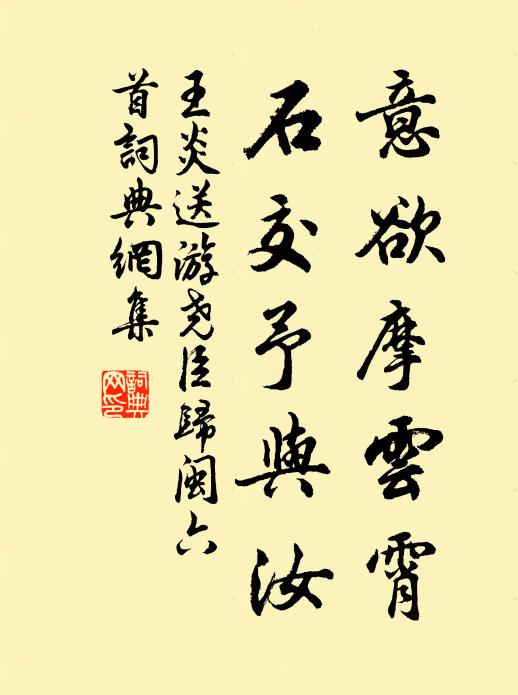 意欲摩雲霄
石交予與汝
王炎送游尧臣歸閩六
首詞典網集
詞典
网印